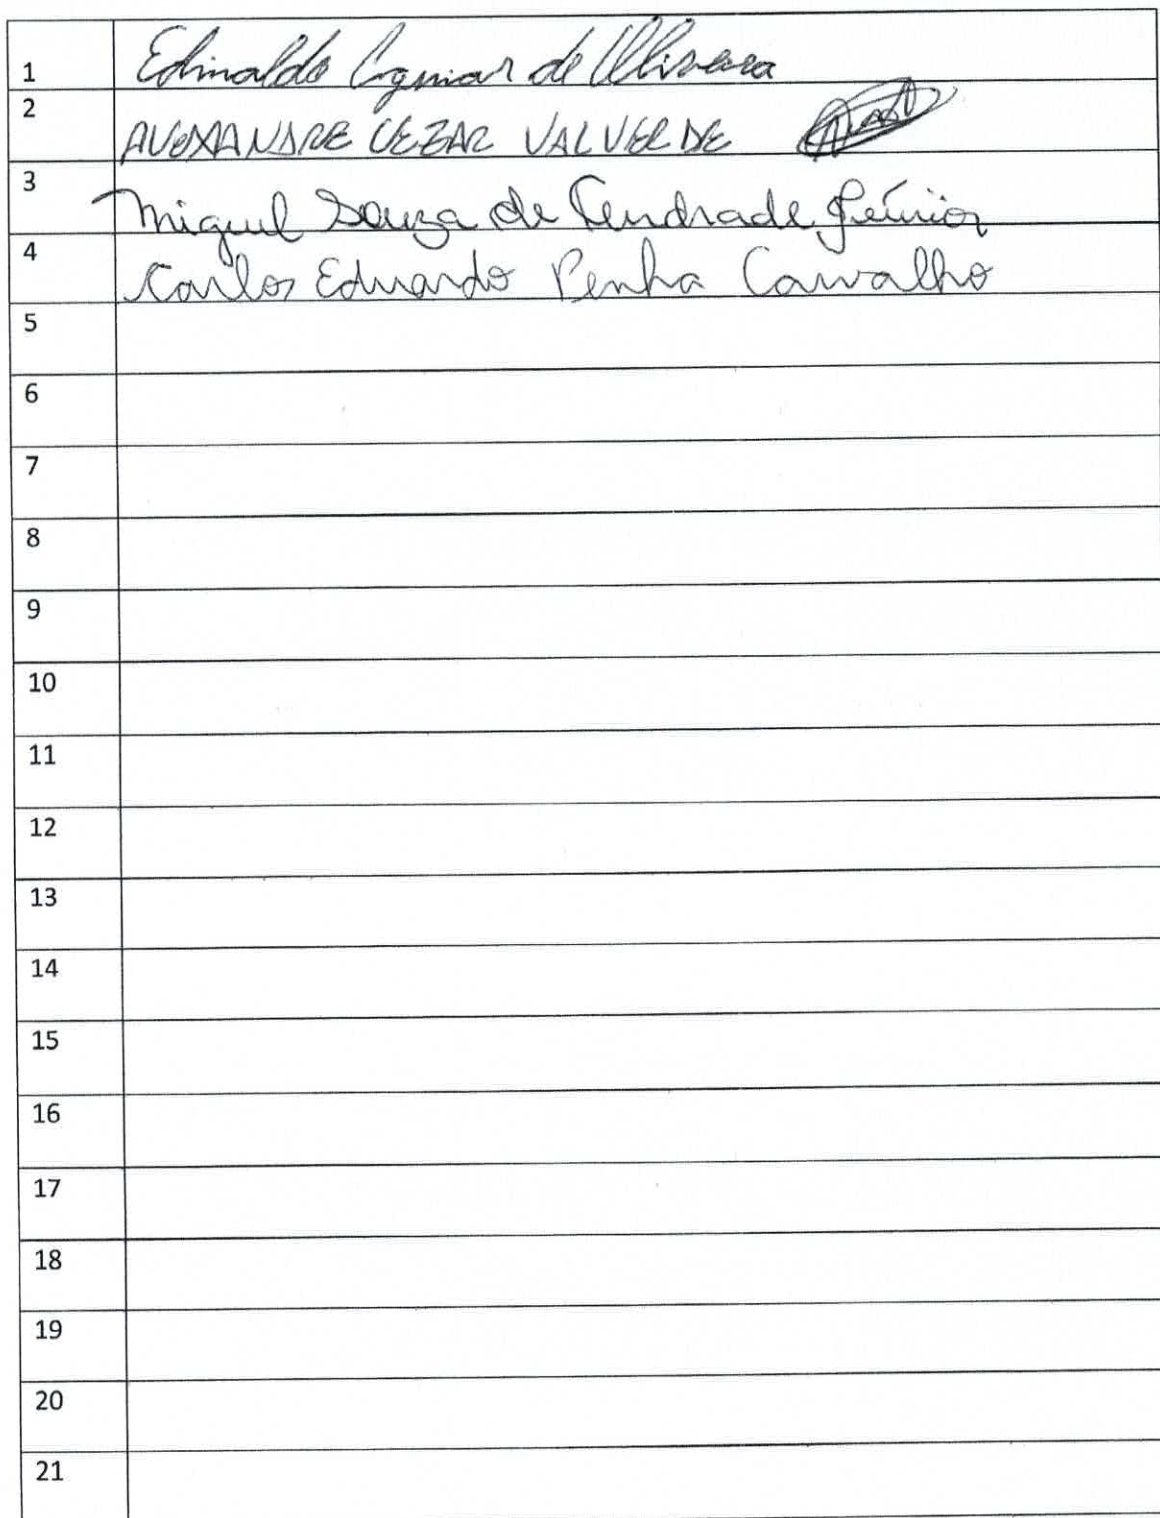 1 Edinaldo Aguiar de Oliveira
2 ALEXANDRE CEZAR VALVERDE
3 Miguel Souza de Andrade Júnior
4 Carlos Eduardo Penha Carvalho
5
6
7
8
9
10
11
12
13
14
15
16
17
18
19
20
21